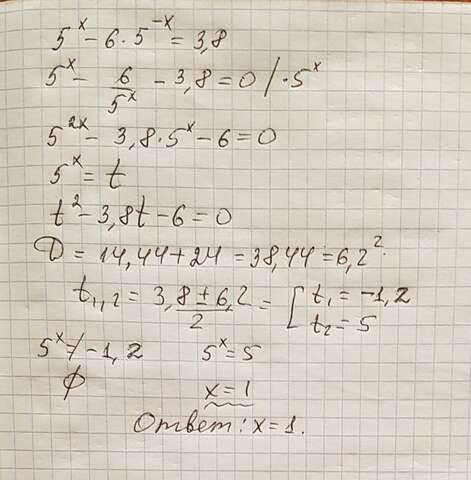 5^x − 6 · 5^{−x} = 3,8
5^x − 6/5^x − 3,8 = 0 / · 5^x
5^{2x} − 3,8 · 5^x − 6 = 0
5^x = t
t^2 − 3,8t − 6 = 0
D = 14,44 + 24 = 38,44 = 6,2^2.
t_{1,2} = (3,8 ± 6,2)/2 = [ t_1 = −1,2
t_2 = 5
5^x ≠ −1,2 5^x = 5
∅ x = 1
Ответ: x = 1.